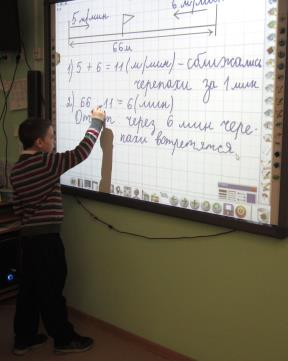 5 м/мин 6 м/мин
66м
1) 5 + 6 = 11 (м/мин) - сближались
черепахи за 1 мин
2) 66 11 = 6 (мин)
через 6 мин чере-
пахи встретятся.